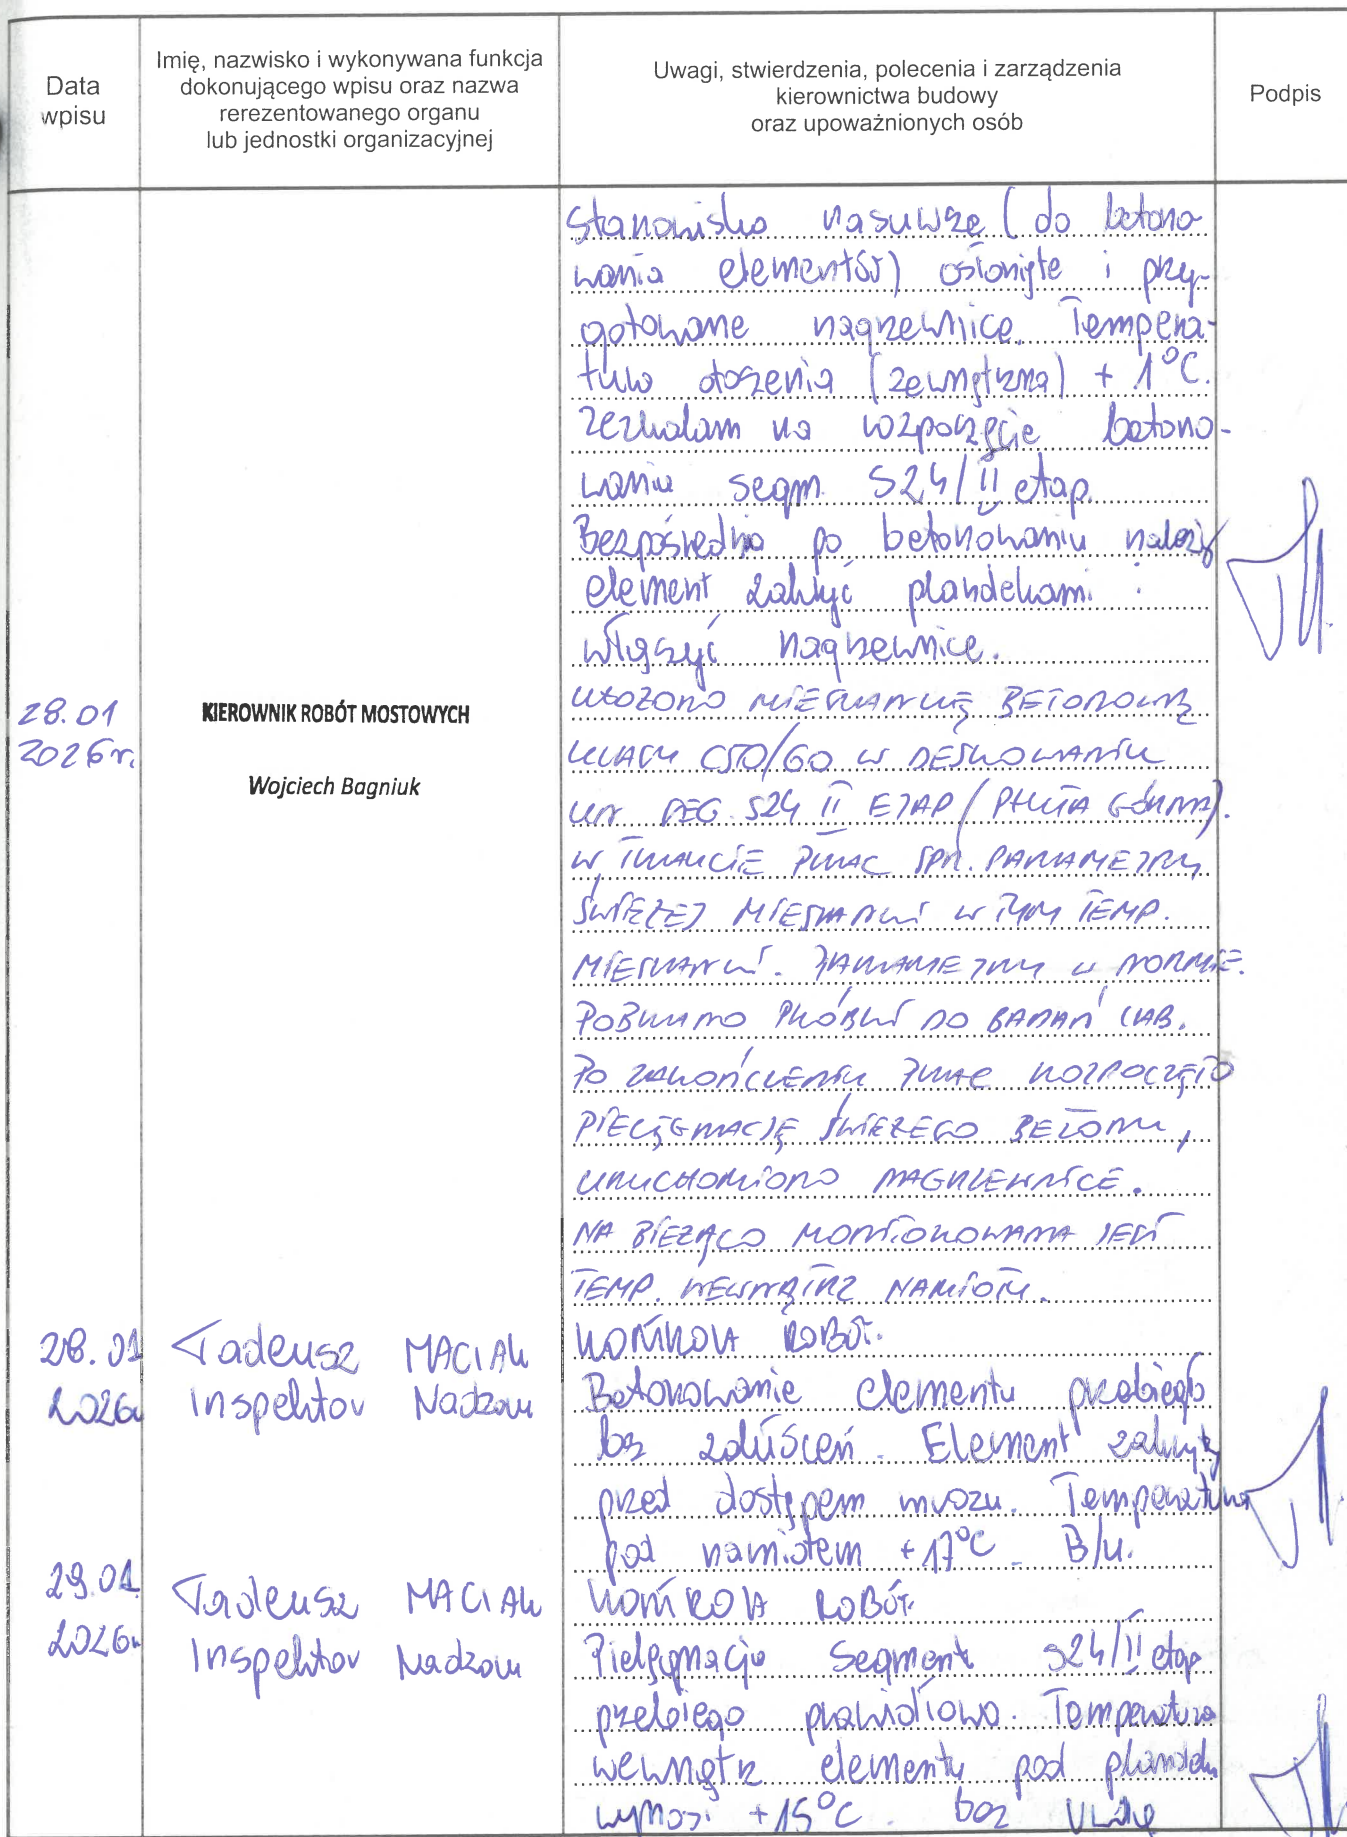 Data
wpisu
Imię, nazwisko i wykonywana funkcja
dokonującego wpisu oraz nazwa
rerezentowanego organu
lub jednostki organizacyjnej
Uwagi, stwierdzenia, polecenia i zarządzenia
kierownictwa budowy
oraz upoważnionych osób
Podpis
Stanowisko nasuwcze (do betono
wania elementów) osłonięte i przy-
gotowane nagrzewnice. Tempera-
tura otoczenia (zewnętrzna) + 1°C.
Zezwalam na rozpoczęcie betono-
wania segm. S24/II etap.
Bezpośrednio po betonowaniu należy
element zakryć plandekami i
włączyć nagrzewnice.
28.01
2026r.
KIEROWNIK ROBÓT MOSTOWYCH
Wojciech Bagniuk
UŁOŻONO MIESZANKĘ BETONOWĄ
KLASY C50/60 W DESKOWANIU
SEG. S24 II ETAP (PŁYTA GÓRNA).
W TRAKCIE PRAC SPR. PARAMETRY
ŚWIEŻEJ MIESZANKI W TYM TEMP.
MIESZANKI. PARAMETRY W NORMIE.
POBRANO PRÓBKI DO BADAŃ LAB.
PO ZAKOŃCZENIU PRAC ROZPOCZĘTO
PIELĘGNACJĘ ŚWIEŻEGO BETONU,
URUCHOMIONO NAGRZEWNICE.
NA BIEŻĄCO MONITOROWANA JEST
TEMP. WEWNĄTRZ NAMIOTU.
28.01
2026r
Tadeusz MACIAK
Inspektor Nadzoru
KONTROLA ROBÓT.
Betonowanie elementu przebiegło
bez zakłóceń. Element zakryty
przed dostępem mrozu. Temperatura
pod namiotem +17°C. B/u.
29.01
2026r
Tadeusz MACIAK
Inspektor Nadzoru
KONTROLA ROBÓT.
Pielęgnacja Segment S24/II etap
przebiega prawidłowo. Temperatura
wewnątrz elementu pod plandeką
wynosi +15°C. bez uwag